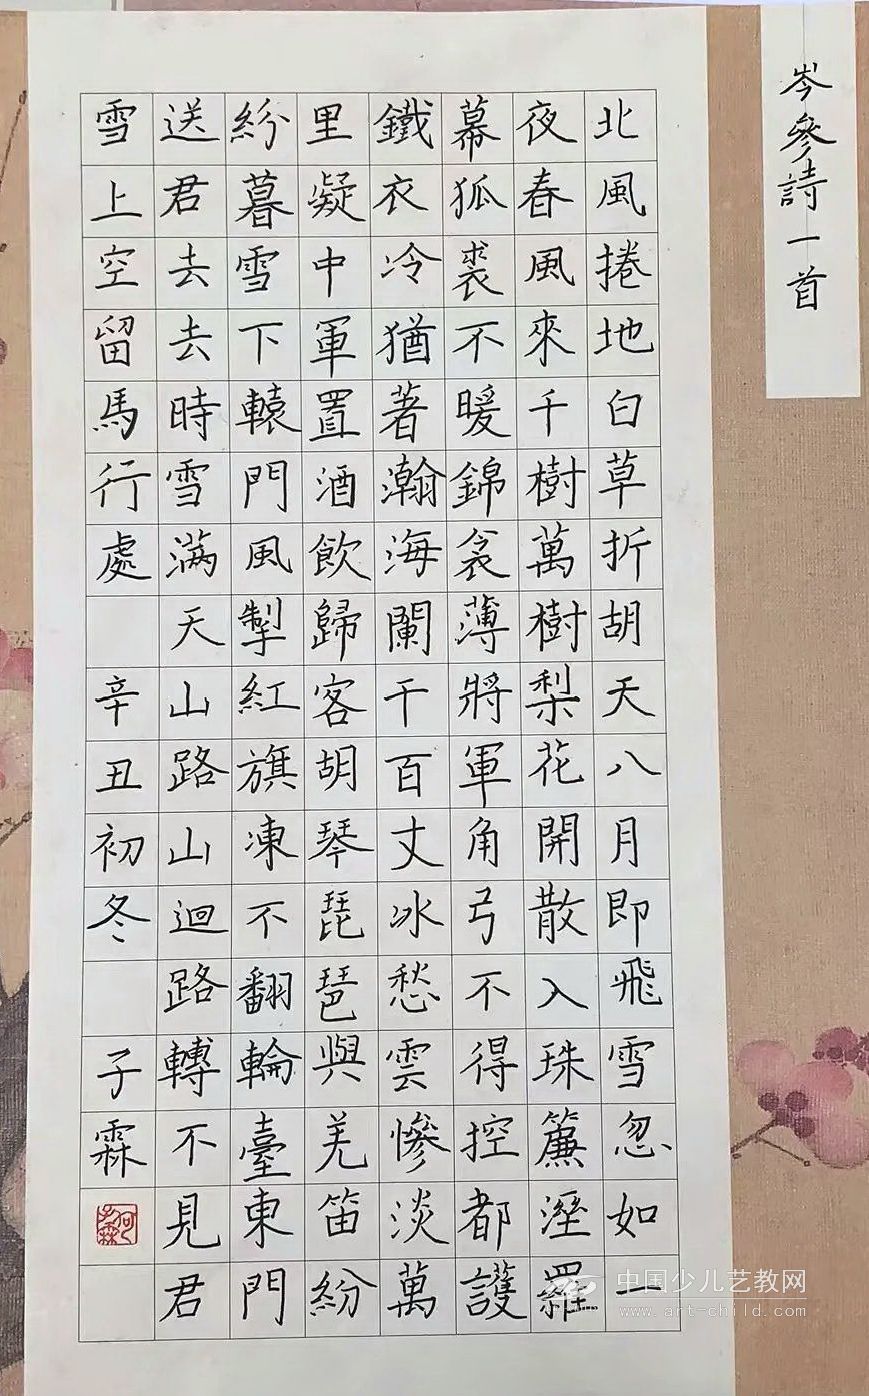 岑參詩一首
北風捲地白草折胡天八月即飛雪忽如一
夜春風來千樹萬樹梨花開散入珠簾溼羅
幕狐裘不暖錦衾薄將軍角弓不得控都護
鐵衣冷猶著瀚海闌干百丈冰愁雲慘淡萬
里凝中軍置酒飲歸客胡琴琵琶與羌笛紛
紛暮雪下轅門風掣紅旗凍不翻輪臺東門
送君去去時雪滿天山路山迴路轉不見君
雪上空留馬行處 辛丑初冬 子霖
中国少儿艺教网
www.art-child.com